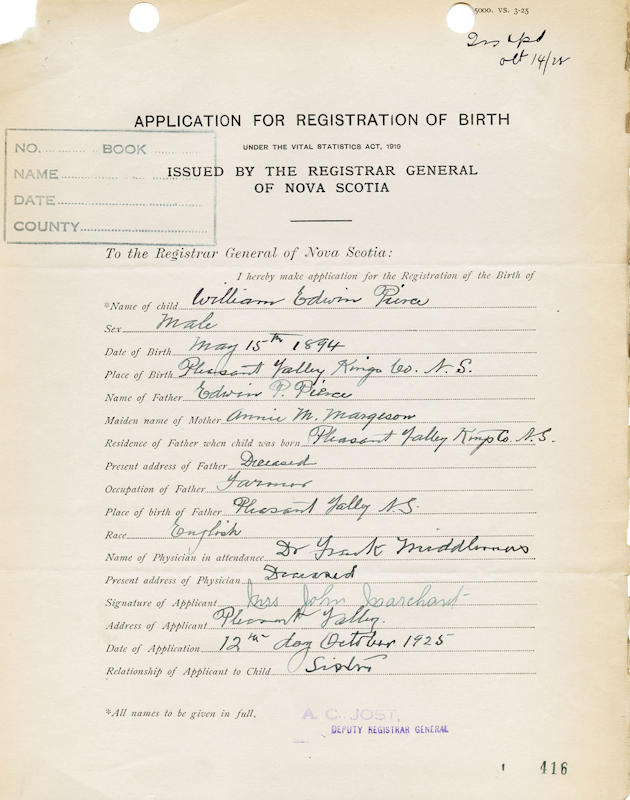 5000. VS. 3-25
Oct 14/25
APPLICATION FOR REGISTRATION OF BIRTH
UNDER THE VITAL STATISTICS ACT, 1919
ISSUED BY THE REGISTRAR GENERAL
OF NOVA SCOTIA
NO. BOOK
NAME
DATE
COUNTY
To the Registrar General of Nova Scotia:
I hereby make application for the Registration of the Birth of
*Name of child William Edwin Pierce
Sex Male
Date of Birth May 15th 1894
Place of Birth Pleasant Valley Kings Co. N.S.
Name of Father Edwin P. Pierce
Maiden name of Mother Annie M. Margeson
Residence of Father when child was born Pleasant Valley Kings Co. N.S.
Present address of Father Deceased
Occupation of Father Farmer
Place of birth of Father Pleasant Valley N.S.
Race English
Name of Physician in attendance Dr Frank Middlemas
Present address of Physician Deceased
Signature of Applicant Mrs John Marchant
Address of Applicant Pleasant Valley.
Date of Application 12th day October 1925
Relationship of Applicant to Child Sister
*All names to be given in full.
A. C. JOST,
DEPUTY REGISTRAR GENERAL
416